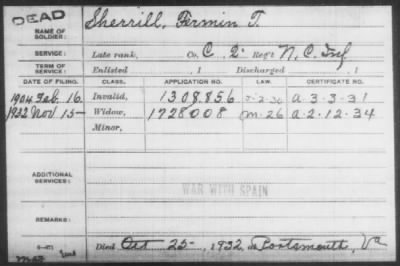 DEAD
NAME OF SOLDIER: Sherrill, Fermin T.
SERVICE: Late rank, Co. C, 2 Reg't N.C. Inf
TERM OF SERVICE: Enlisted , 1 Discharged , 1
DATE OF FILING. CLASS. APPLICATION NO. LAW. CERTIFICATE NO.
1904 Feb. 16 Invalid, 1308856 a-3-3-31
1932 Nov 15 Widow, 1728008 m-26 a-2-12-34
Minor,
ADDITIONAL SERVICES:
WAR WITH SPAIN
REMARKS:
Died Oct 25, 1932, Portsmouth, Va